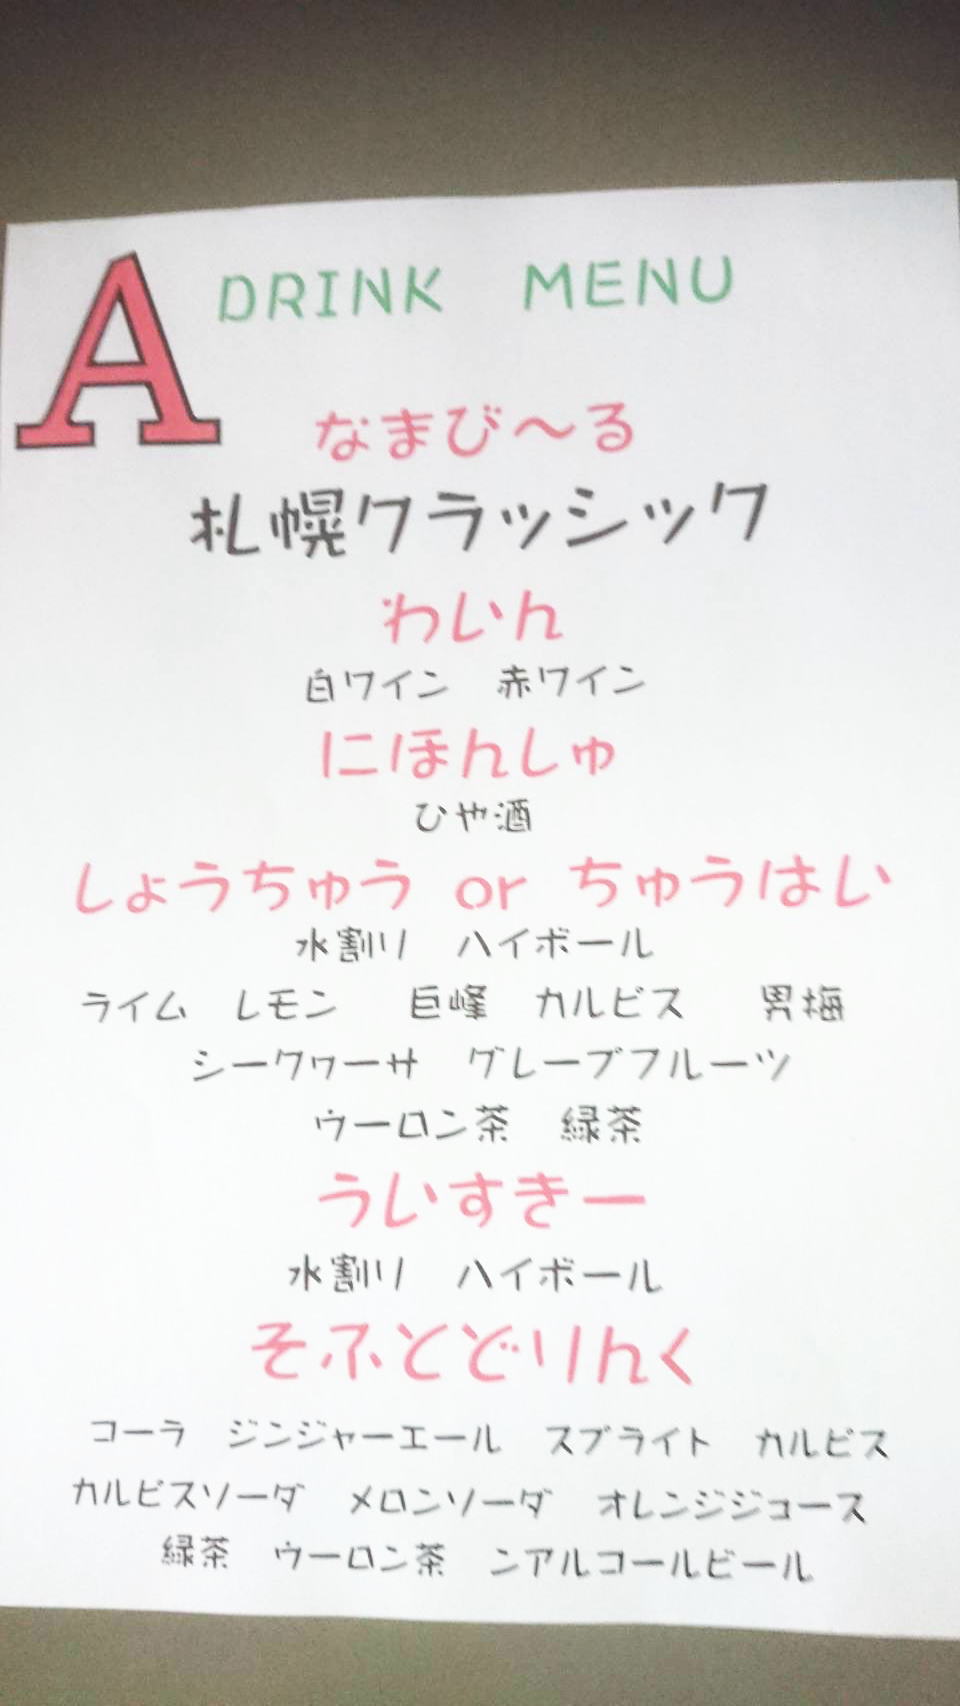 A DRINK MENU
なまび〜る
札幌クラッシック
わいん
白ワイン 赤ワイン
にほんしゅ
ひや酒
しょうちゅう or ちゅうはい
水割り ハイボール
ライム レモン 巨峰 カルピス 男梅
シークヮーサ グレープフルーツ
ウーロン茶 緑茶
ういすきー
水割り ハイボール
そふとどりんく
コーラ ジンジャーエール スプライト カルピス
カルピスソーダ メロンソーダ オレンジジュース
緑茶 ウーロン茶 ンアルコールビール